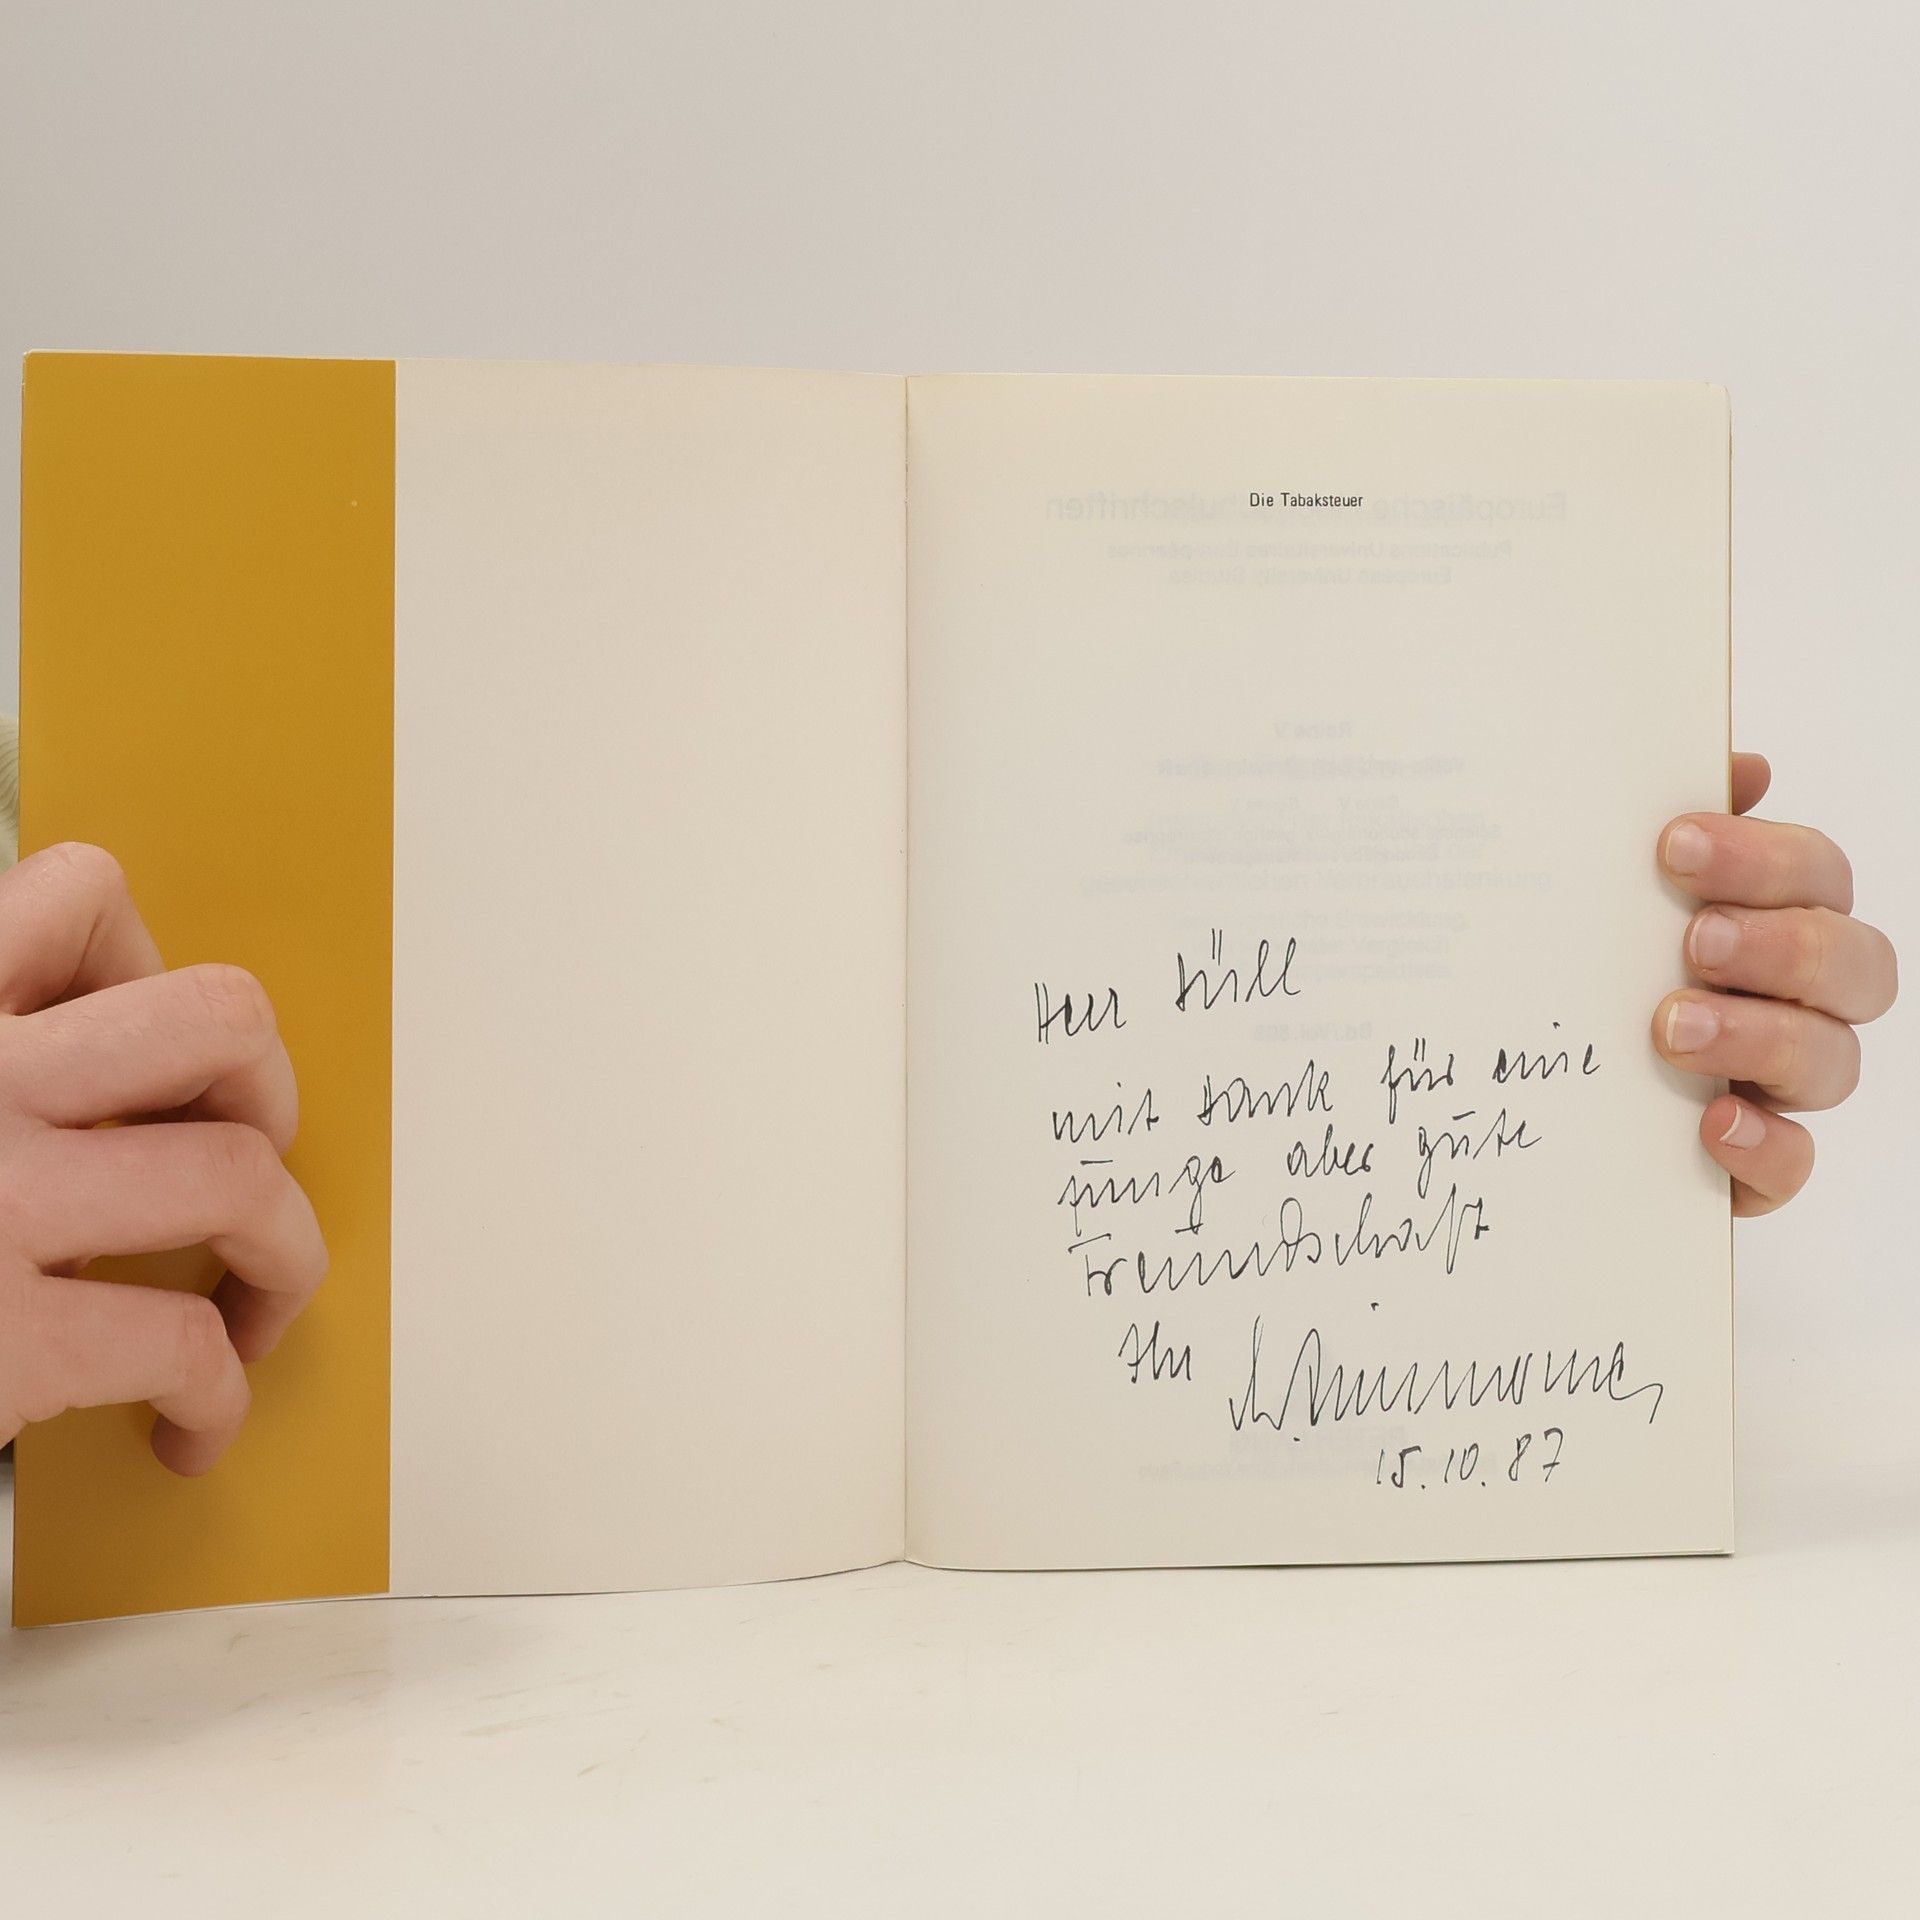 Die Tabaksteuer
Herr
mit Dank für eine
junge aber gute
Freundschaft
Ihr
15.10.87